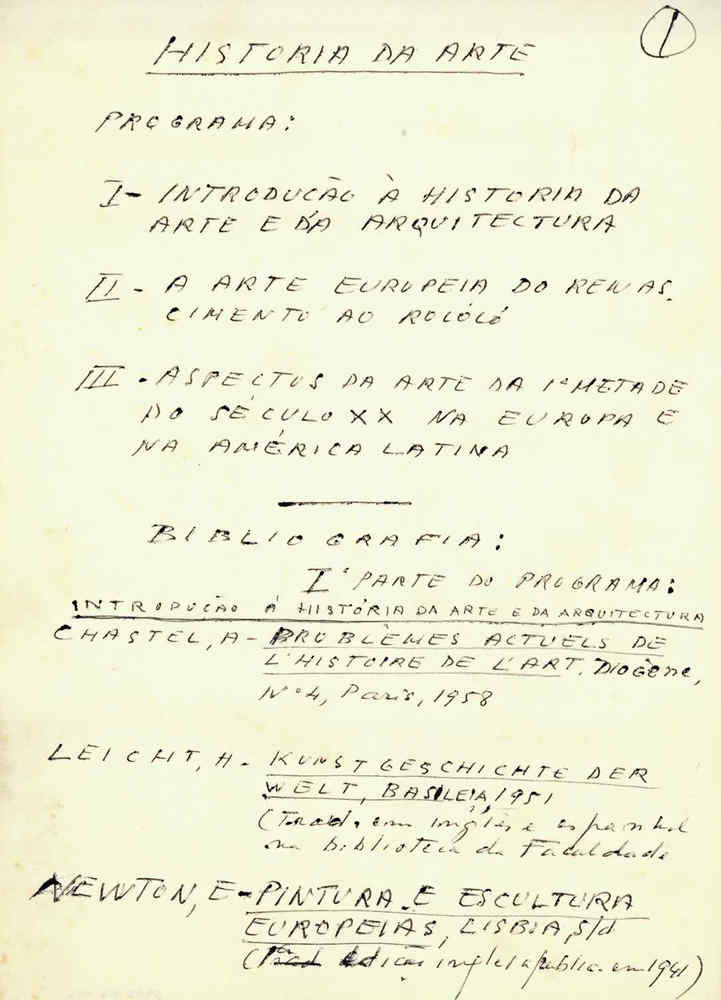 1
HISTORIA DA ARTE
PROGRAMA:
I - INTRODUCÃO À HISTORIA DA
ARTE E DA ARQUITECTURA
II - A ARTE EUROPEIA DO RENAS.
CIMENTO AO ROCÓCÓ
III - ASPECTOS DA ARTE DA 1ª METADE
DO SÉCULO XX NA EUROPA E
NA AMÉRICA LATINA
BIBLIOGRAFIA:
Iª PARTE DO PROGRAMA:
INTRODUCÃO Á HISTÓRIA DA ARTE E DA ARQUITECTURA
CHASTEL, A - PROBLÈMES ACTUELS DE
L'HISTOIRE DE L'ART. DIOGène,
Nº 4, Paris, 1958
LEICHT, H - KUNSTGESCHICHTE DER
WELT, BASILEIA, 1951
(Trad. em inglês e espanhol
na Biblioteca da Faculdade
NEWTON, E - PINTURA E ESCULTURA
EUROPEIAS, LISBIA, s/d
(edição inglesa public. em 1941)